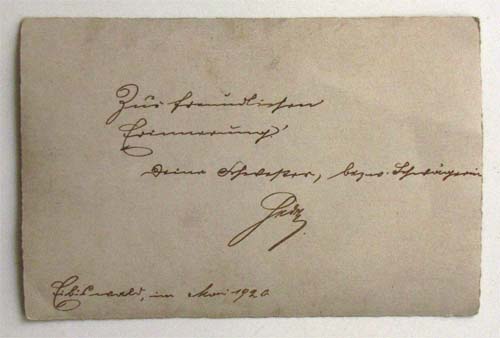 Zur freundlichen
Erinnerung!
deine Schwester, bezw. Schwägerin
Eibiswald, im Mai 1920